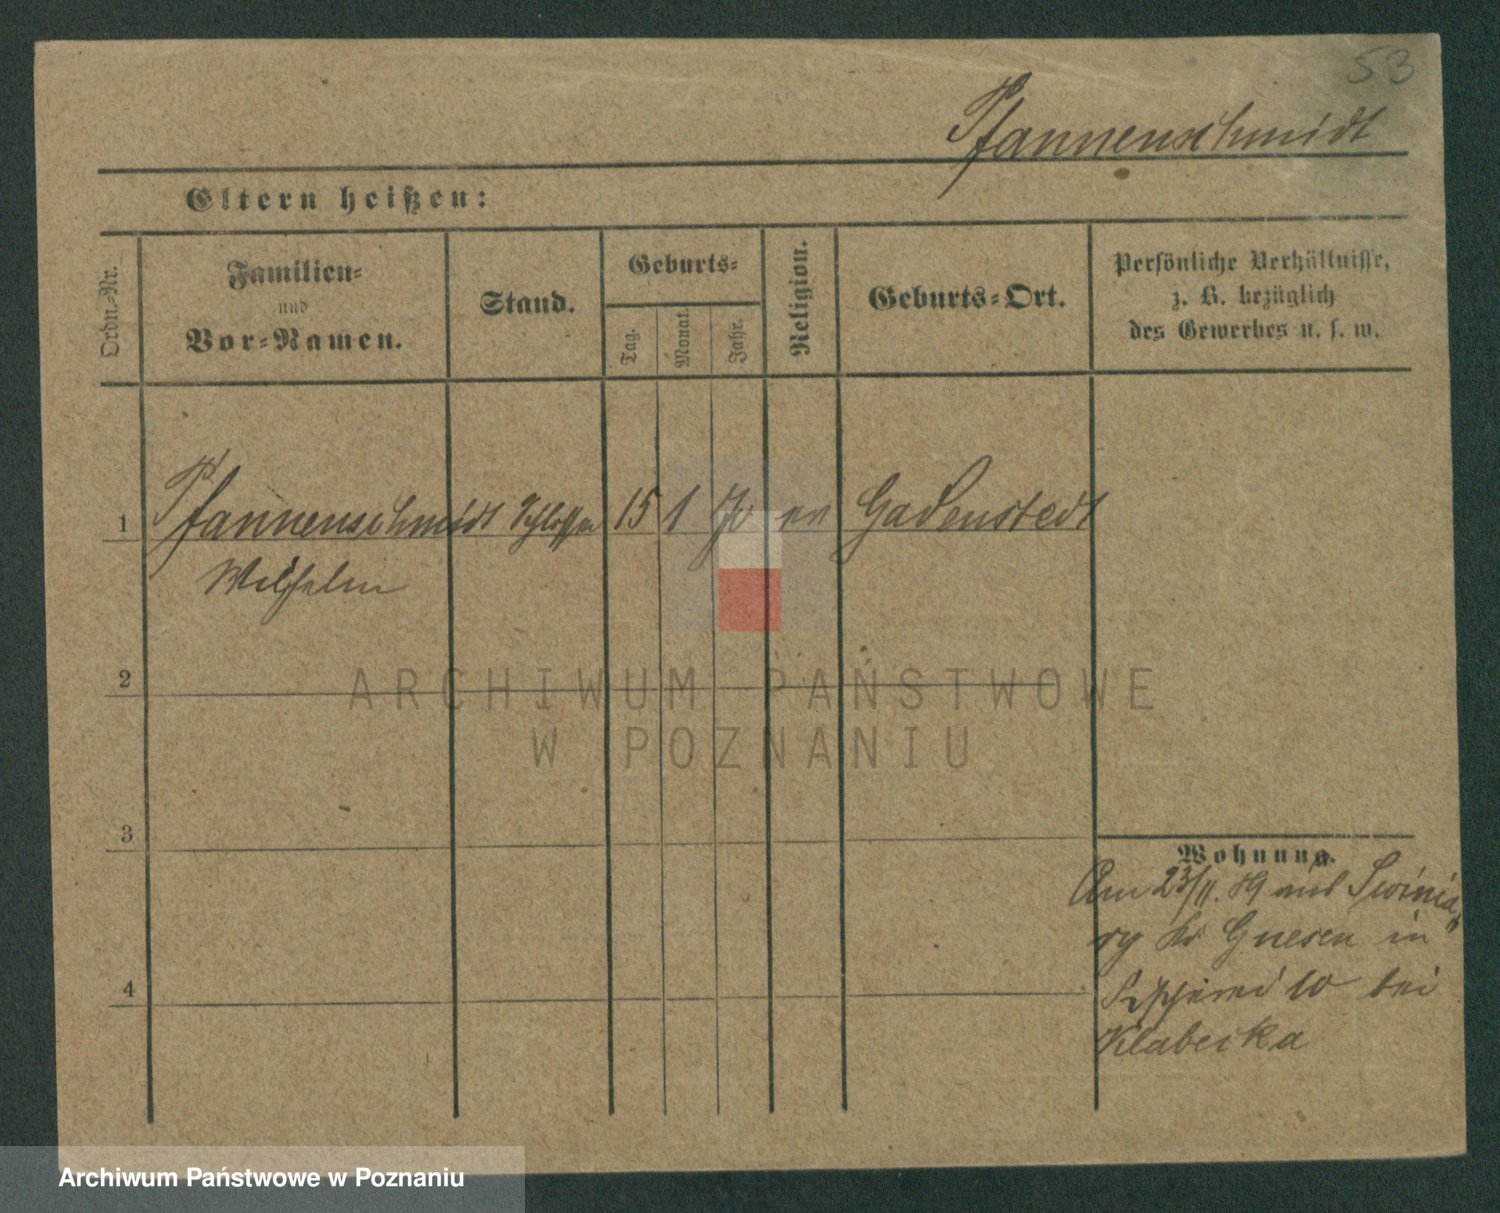 53
Pfannenschmidt
Eltern heißen:
Ordn.=Nr.
Familien=
und
Vor=Namen.
Stand.
Geburts=
Tag.
Monat.
Jahr.
Religion.
Geburts=Ort.
Persönliche Verhältnisse,
z. B. bezüglich
des Gewerbes u. s. w.
1 Pfannenschmidt Schlosser 15 1 70 ev Gadenstedt
Wilhelm
2
ARCHIWUM PAŃSTWOWE
W POZNANIU
3
Wohnung.
Am 23/11. 89 aus Swinia
ry Kr Gnesen in
10 bei
4
Klabecka
Archiwum Państwowe w Poznaniu